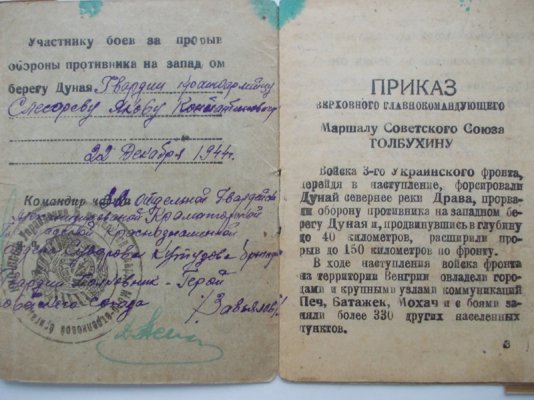 Участнику боев за прорыв
обороны противника на запад ом
берегу Дуная, Гвардии красноармейцу
Слесареву Якову Константиновичу
22 Декабря 1944г.
Командир части Отдельной Гвардейской
Механизированой Краматорской
Краснознаменной
Суворова Кутузова бригады
Гвардии Полковник - Герой
Советского Союза /Завьялов/
ПРИКАЗ
ВЕРХОВНОГО ГЛАВНОКОМАНДУЮЩЕГО
Маршалу Советского Союза
ТОЛБУХИНУ
Войска 3-го Украинского фронта,
перейдя в наступление, форсировали
Дунай севернее реки Драва, прорва-
ли оборону противника на западном бе-
регу Дуная и, продвинувшись в глубину
до 40 километров, расширили про-
рыв до 150 километров по фронту.
В ходе наступления войска фронта
на территории Венгрии овладели горо-
дами и крупными узлами коммуникаций
Печ, Батажек, Мохач и с боями за-
няли более 330 других населенных
пунктов.
3